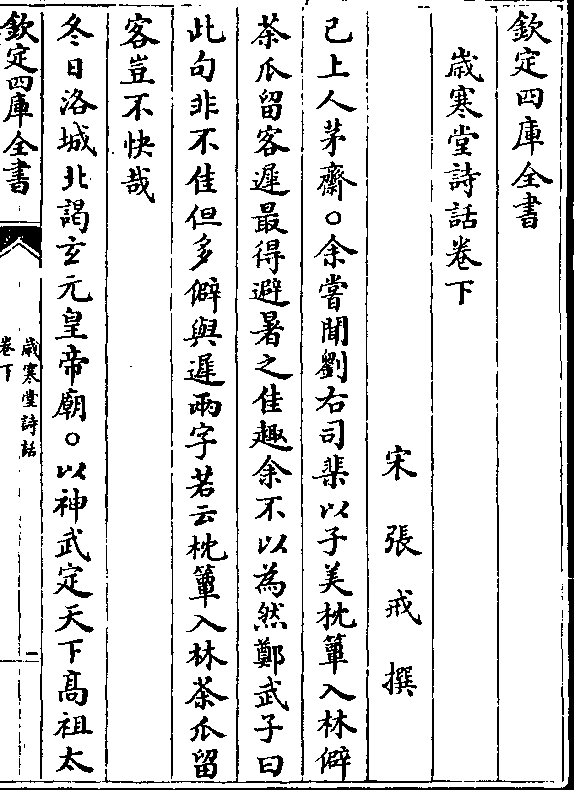 欽定四庫全書
歲寒堂詩話卷下
宋張戒撰
已上人茅齋○余嘗聞劉右司棐以子美枕簟入林僻
茶瓜留客遲最得避暑之佳趣余不以為然鄭武子曰
此句非不佳但多僻與遲兩字若云枕簟入林茶瓜留
客豈不快哉
冬日洛城北謁玄元皇帝廟○以神武定天下髙祖太
欽定四庫全書
歲寒堂詩話
卷下
一